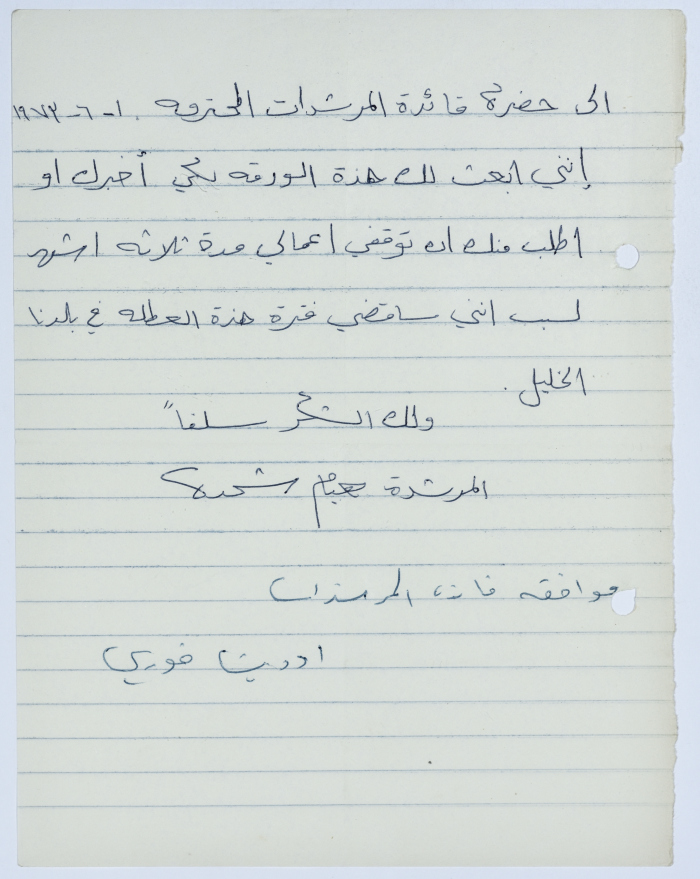 الى حضرة قائدة المرشدات المحترمه . ١-٦-١٩٧٣
إنني ابعث لك هذة الورقه لكي أخبرك او
اطلب منك ان توقفي اعمالي مدة ثلاثه اشهر
لسبب انني ساقضي فترة هذة العطله في بلدنا
الخليل .
ولك الشكر سلفاً
المرشدة شحدة
موافقه قائدة المرشدات
اوديت خوري